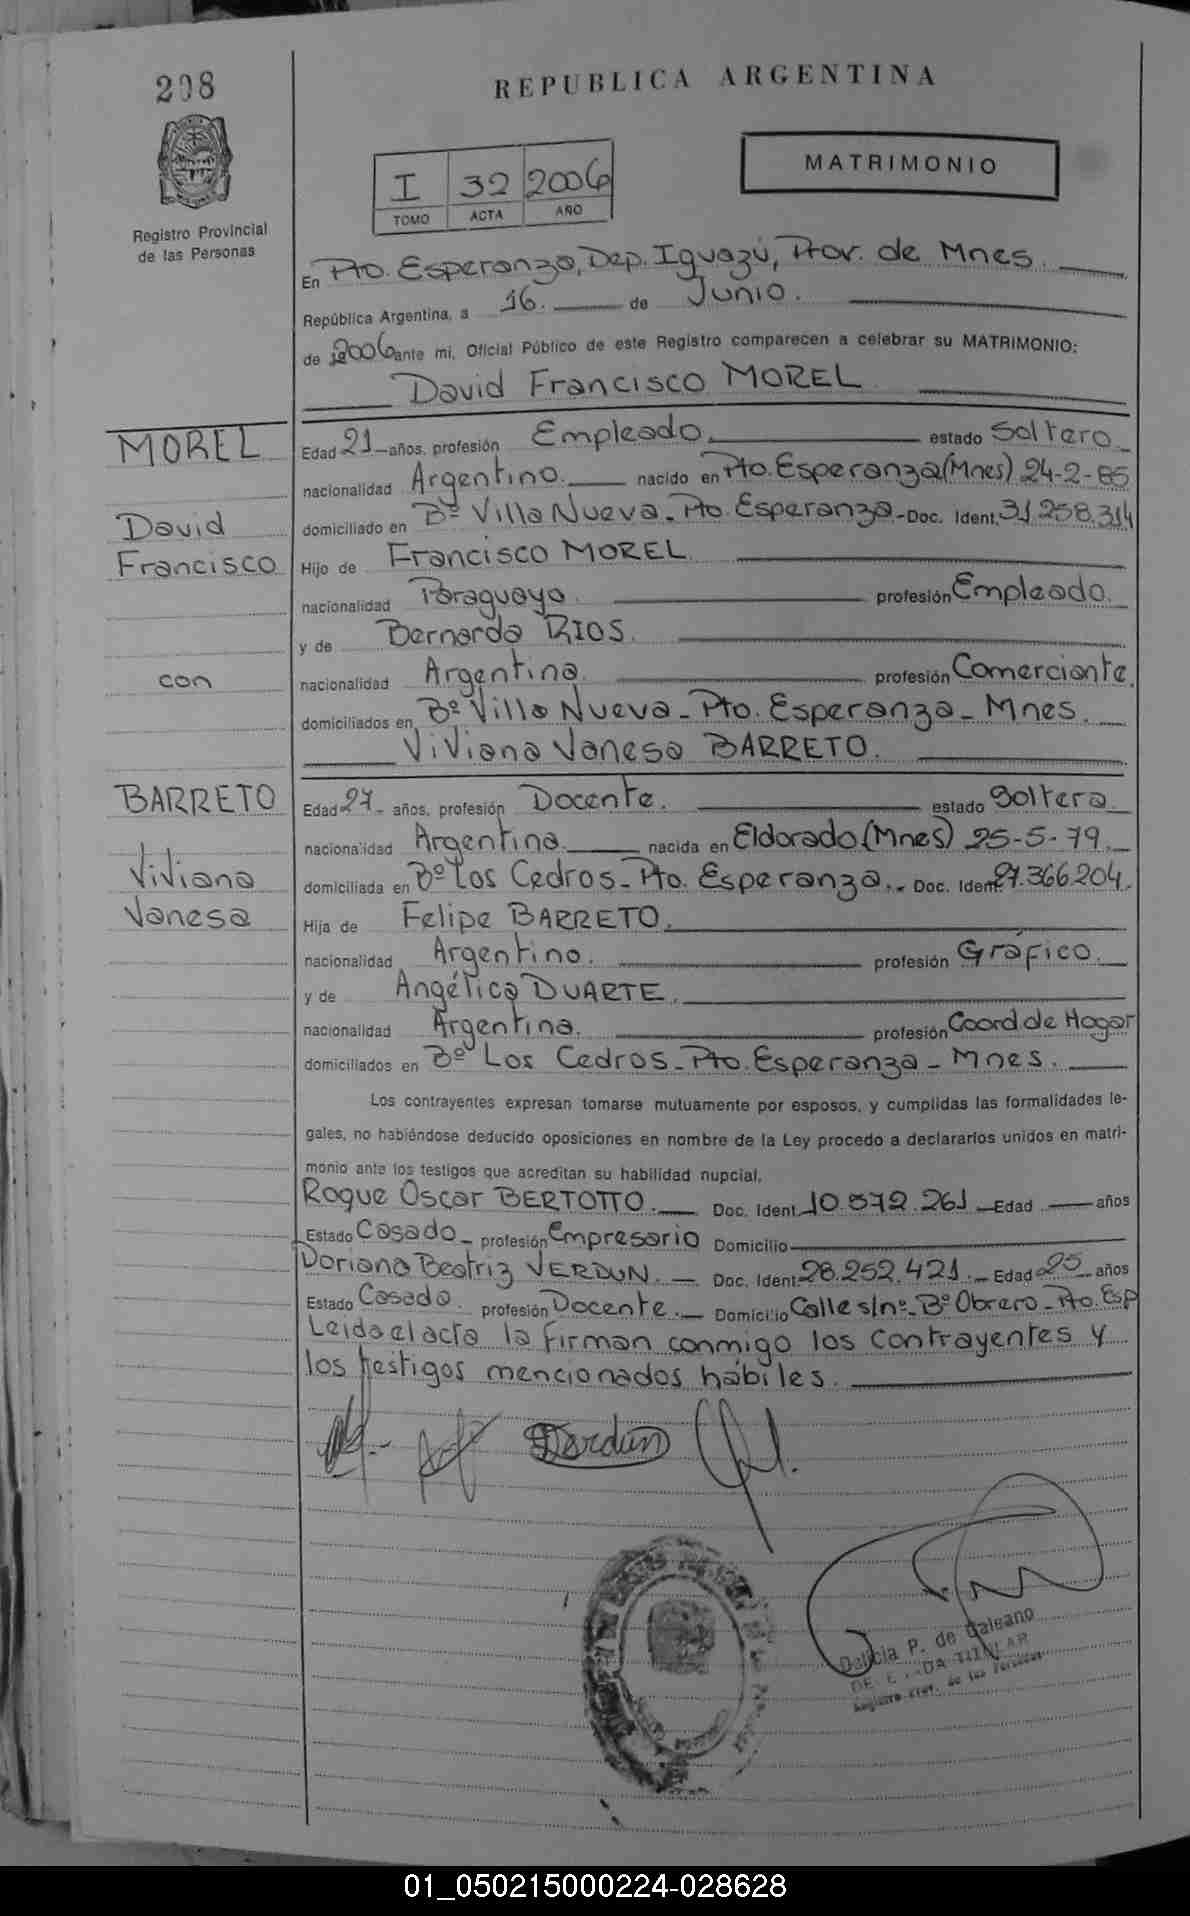 208
REPUBLICA ARGENTINA
Registro Provincial
de las Personas
I 32 2006
TOMO ACTA AÑO
MATRIMONIO
En Pto. Esperanza, Dep. Iguazú, Prov. de Mnes.
República Argentina, a 16. de Junio.
de 2006 ante mi, Oficial Público de este Registro comparecen a celebrar su MATRIMONIO:
David Francisco MOREL
MOREL
David
Francisco
con
BARRETO
Viviana
Vanesa
Edad 21 años, profesión Empleado. estado Soltero
nacionalidad Argentino. nacido en Pto. Esperanza (Mnes) 24-2-85
domiciliado en Bº Villa Nueva - Pto. Esperanza - Doc. Ident. 31.258.314
Hijo de Francisco MOREL
nacionalidad Paraguayo. profesión Empleado.
y de Bernarda RIOS.
nacionalidad Argentina. profesión Comerciante.
domiciliados en Bº Villa Nueva - Pto. Esperanza - Mnes.
Viviana Vanesa BARRETO.
Edad 27 - años, profesión Docente. estado Soltera
nacionalidad Argentina. nacida en Eldorado (Mnes) 25-5-79.
domiciliada en Bº Los Cedros - Pto. Esperanza. - Doc. Ident. 27.366.204.
Hija de Felipe BARRETO.
nacionalidad Argentino. profesión Gráfico.
y de Angélica DUARTE.
nacionalidad Argentina. profesión Coord de Hogar
domiciliados en Bº Los Cedros - Pto. Esperanza - Mnes.
Los contrayentes expresan tomarse mutuamente por esposos, y cumplidas las formalidades le-
gales, no habiéndose deducido oposiciones en nombre de la Ley procedo a declararlos unidos en matri-
monio ante los testigos que acreditan su habilidad nupcial,
Roque Oscar BERTOTTO. Doc. Ident. 10.572.261 Edad años
Estado Casado - profesión Empresario Domicilio
Doriana Beatriz VERDUN. - Doc. Ident. 28.252.421. - Edad 25 años
Estado Casada. profesión Docente. - Domicilio Calle s/nº - Bº Obrero - Pto. Esp
Leida el acta la firman conmigo los contrayentes y
los testigos mencionados hábiles.
Verdún
Delicia P. de Galeano
TITULAR
Registro Prov. de las Personas
01_050215000224-028628